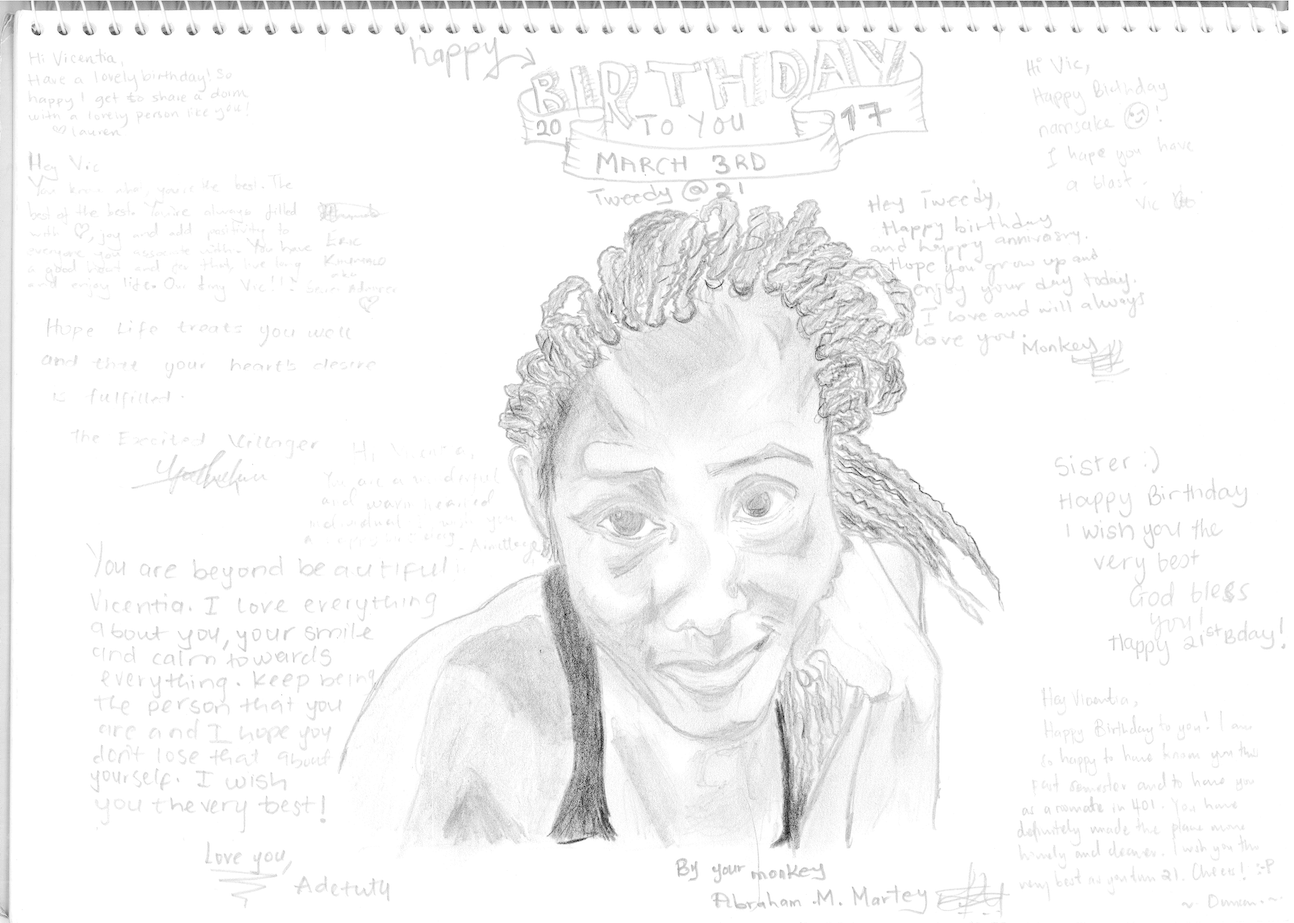 happy
BIRTHDAY
20 TO YOU 17
MARCH 3RD
Tweedy @ 21
Hi Vicentia,
Have a lovely birthday! So
happy I get to share a dorm
with a lovely person like you!
♡ Lauren
Hey Vic
You know who, you're the best. The
best of the best. You're always filled
with ♡, joy and add positivity to
everyone you associate with. You have
a good heart and for that, live long
and enjoy life. Our tiny Vic!!
Eric
aka
Hope Life treats you well
and that your heart's desire
is fulfilled.
The Excited Villager
Hi Vicentia,
You are a
and warm hearted
individual. I wish you
a happy
You are beyond beautiful
Vicentia. I love everything
about you, your smile
and calm towards
everything. Keep being
the person that you
are and I hope you
don't lose that about
yourself. I wish
you the very best!
Love you,
Adetutu
Hi Vic,
Happy Birthday
namsake ☺!
I hope you have
a blast.
Vic
Hey Tweedy,
Happy birthday
and happy annivasry.
Hope you grow up and
enjoy your day today.
I love and will always
love you.
Monkey
Sister :)
Happy Birthday
I wish you the
very best
God bless
you!
Happy 21st Bday!
Hey Vicentia,
Happy Birthday to you! I am
so happy to have known you this
past semester and to have you
as a in 401. You have
definitely made the place more
lively and . I wish you the
very best as you turn 21. Cheers! :-P
~ Duncan ~
By your monkey
Abraham .M. Martey